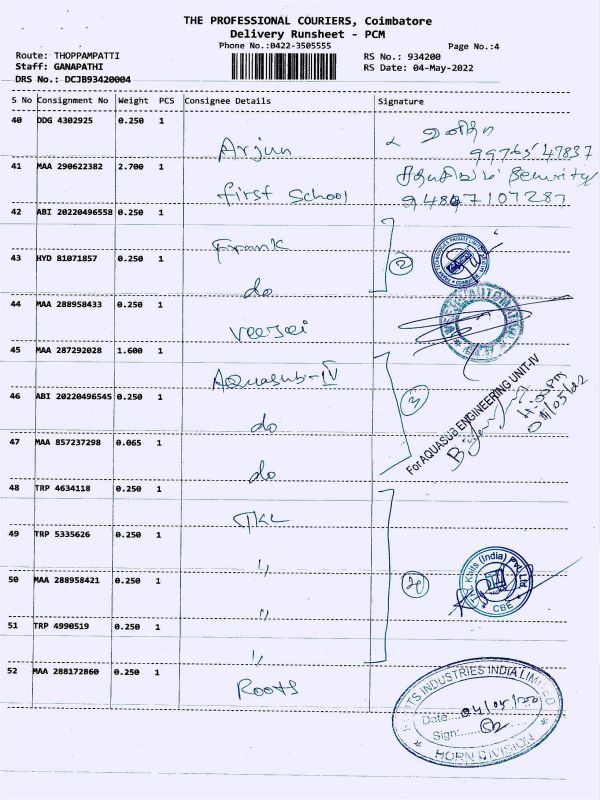 THE PROFESSIONAL COURIERS, Coimbatore
Delivery Runsheet - PCM
Phone No.:0422-3505555
Page No.:4
Route: THOPPAMPATTI
RS No.: 934200
Staff: GANAPATHI
RS Date: 04-May-2022
DRS No.: DCJB93420004
S No Consignment No Weight PCS Consignee Details Signature
40 DDG 4302925 0.250 1
Arjun
41 MAA 290622382 2.700 1
First School
Security
42 ABI 20220496558 0.250 1
Frank
43 HYD 81071857 0.250 1
2
do
44 MAA 288958433 0.250 1
45 MAA 287292028 1.600 1
Aquasub-IV
46 ABI 20220496545 0.250 1
3
do
For AQUASUB ENGINEERING UNIT-IV
47 MAA 857237298 0.065 1
do
48 TRP 4634118 0.250 1
TKL
49 TRP 5335626 0.250 1
,,
50 MAA 288958421 0.250 1
T.K.L Knits (India) Pvt Ltd
CBE
,,
51 TRP 4990519 0.250 1
,,
52 MAA 288172860 0.250 1
Roots
ROOTS INDUSTRIES INDIA LIMITED
Date: 04/05/22
Sign:
HORN DIVISION